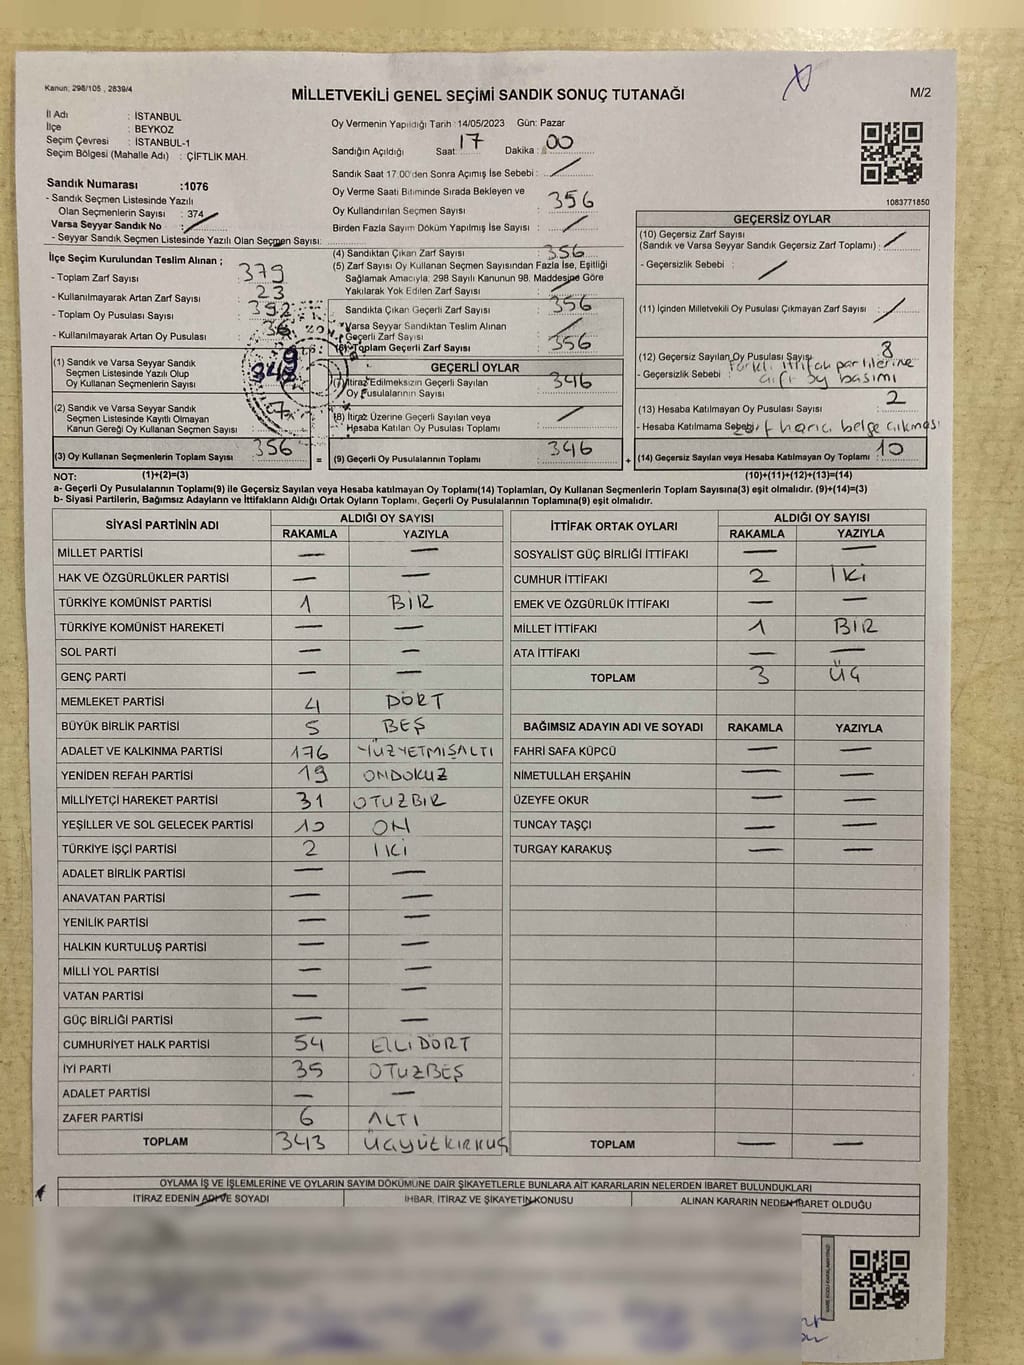 Kanun; 298/105 , 2839/4
MİLLETVEKİLİ GENEL SEÇİMİ SANDIK SONUÇ TUTANAĞI
M/2
İl Adı : İSTANBUL
İlçe : BEYKOZ
Seçim Çevresi : İSTANBUL-1
Seçim Bölgesi (Mahalle Adı) : ÇİFTLİK MAH.
Sandık Numarası :1076
- Sandık Seçmen Listesinde Yazılı
Olan Seçmenlerin Sayısı : 374
Varsa Seyyar Sandık No :
- Seyyar Sandık Seçmen Listesinde Yazılı Olan Seçmen Sayısı:
Oy Vermenin Yapıldığı Tarih :14/05/2023 Gün: Pazar
Sandığın Açıldığı Saat: 17 Dakika : 00
Sandık Saat 17.00'den Sonra Açımış İse Sebebi :
Oy Verme Saati Bitiminde Sırada Bekleyen ve
Oy Kullandırılan Seçmen Sayısı : 356
Birden Fazla Sayım Döküm Yapılmış İse Sayısı :
1083771850
İlçe Seçim Kurulundan Teslim Alınan ;
- Toplam Zarf Sayısı : 379
- Kullanılmayarak Artan Zarf Sayısı : 23
- Toplam Oy Pusulası Sayısı : 392
- Kullanılmayarak Artan Oy Pusulası
(1) Sandık ve Varsa Seyyar Sandık
Seçmen Listesinde Yazılı Olup
Oy Kullanan Seçmenlerin Sayısı
(2) Sandık ve Varsa Seyyar Sandık
Seçmen Listesinde Kayıtlı Olmayan
Kanun Gereği Oy Kullanan Seçmen Sayısı : 7
(3) Oy Kullanan Seçmenlerin Toplam Sayısı : 356
(4) Sandıktan Çıkan Zarf Sayısı : 356
(5) Zarf Sayısı Oy Kullanan Seçmen Sayısından Fazla İse, Eşitliği
Sağlamak Amacıyla; 298 Sayılı Kanunun 98. Maddesine Göre
Yakılarak Yok Edilen Zarf Sayısı :
Sandıkta Çıkan Geçerli Zarf Sayısı : 356
Varsa Seyyar Sandıktan Teslim Alınan
Geçerli Zarf Sayısı :
(6) Toplam Geçerli Zarf Sayısı : 356
GEÇERLİ OYLAR
(7) İtiraz Edilmeksizin Geçerli Sayılan
Oy Pusulalarının Sayısı : 346
(8) İtiraz Üzerine Geçerli Sayılan veya
Hesaba Katılan Oy Pusulası Toplamı :
= (9) Geçerli Oy Pusulalarının Toplamı : 346
GEÇERSİZ OYLAR
(10) Geçersiz Zarf Sayısı
(Sandık ve Varsa Seyyar Sandık Geçersiz Zarf Toplamı) :
- Geçersizlik Sebebi :
(11) İçinden Milletvekili Oy Pusulası Çıkmayan Zarf Sayısı :
(12) Geçersiz Sayılan Oy Pusulası Sayısı : 8
- Geçersizlik Sebebi : farklı ittifak partilerine
çift oy basımı
(13) Hesaba Katılmayan Oy Pusulası Sayısı : 2
- Hesaba Katılmama Sebebi : zarf harici belge çıkması
+ (14) Geçersiz Sayılan veya Hesaba Katılmayan Oy Toplamı : 10
NOT: (1)+(2)=(3) (10)+(11)+(12)+(13)=(14)
a- Geçerli Oy Pusulalarının Toplamı(9) ile Geçersiz Sayılan veya Hesaba katılmayan Oy Toplamı(14) Toplamları, Oy Kullanan Seçmenlerin Toplam Sayısına(3) eşit olmalıdır. (9)+(14)=(3)
b- Siyasi Partilerin, Bağımsız Adayların ve İttifakların Aldığı Ortak Oyların Toplamı, Geçerli Oy Pusulalarının Toplamına(9) eşit olmalıdır.
SİYASİ PARTİNİN ADI ALDIĞI OY SAYISI
RAKAMLA YAZIYLA
MİLLET PARTİSİ — —
HAK VE ÖZGÜRLÜKLER PARTİSİ — —
TÜRKİYE KOMÜNİST PARTİSİ 1 BİR
TÜRKİYE KOMÜNİST HAREKETİ — —
SOL PARTİ — —
GENÇ PARTİ — —
MEMLEKET PARTİSİ 4 DÖRT
BÜYÜK BİRLİK PARTİSİ 5 BEŞ
ADALET VE KALKINMA PARTİSİ 176 YÜZYETMİŞALTI
YENİDEN REFAH PARTİSİ 19 ONDOKUZ
MİLLİYETÇİ HAREKET PARTİSİ 31 OTUZBİR
YEŞİLLER VE SOL GELECEK PARTİSİ 10 ON
TÜRKİYE İŞÇİ PARTİSİ 2 İKİ
ADALET BİRLİK PARTİSİ — —
ANAVATAN PARTİSİ — —
YENİLİK PARTİSİ — —
HALKIN KURTULUŞ PARTİSİ — —
MİLLİ YOL PARTİSİ — —
VATAN PARTİSİ — —
GÜÇ BİRLİĞİ PARTİSİ — —
CUMHURİYET HALK PARTİSİ 54 ELLİDÖRT
İYİ PARTİ 35 OTUZBEŞ
ADALET PARTİSİ — —
ZAFER PARTİSİ 6 ALTI
TOPLAM 343
İTTİFAK ORTAK OYLARI ALDIĞI OY SAYISI
RAKAMLA YAZIYLA
SOSYALİST GÜÇ BİRLİĞİ İTTİFAKI — —
CUMHUR İTTİFAKI 2 İKİ
EMEK VE ÖZGÜRLÜK İTTİFAKI — —
MİLLET İTTİFAKI 1 BİR
ATA İTTİFAKI — —
TOPLAM 3 ÜÇ
BAĞIMSIZ ADAYIN ADI VE SOYADI RAKAMLA YAZIYLA
FAHRİ SAFA KÜPCÜ — —
NİMETULLAH ERŞAHİN — —
ÜZEYFE OKUR — —
TUNCAY TAŞÇI — —
TURGAY KARAKUŞ — —
TOPLAM — —
OYLAMA İŞ VE İŞLEMLERİNE VE OYLARIN SAYIM DÖKÜMÜNE DAİR ŞİKAYETLERLE BUNLARA AİT KARARLARIN NELERDEN İBARET BULUNDUKLARI
İTİRAZ EDENİN ADI VE SOYADI İHBAR, İTİRAZ VE ŞİKAYETİN KONUSU ALINAN KARARIN NEDEN İBARET OLDUĞU